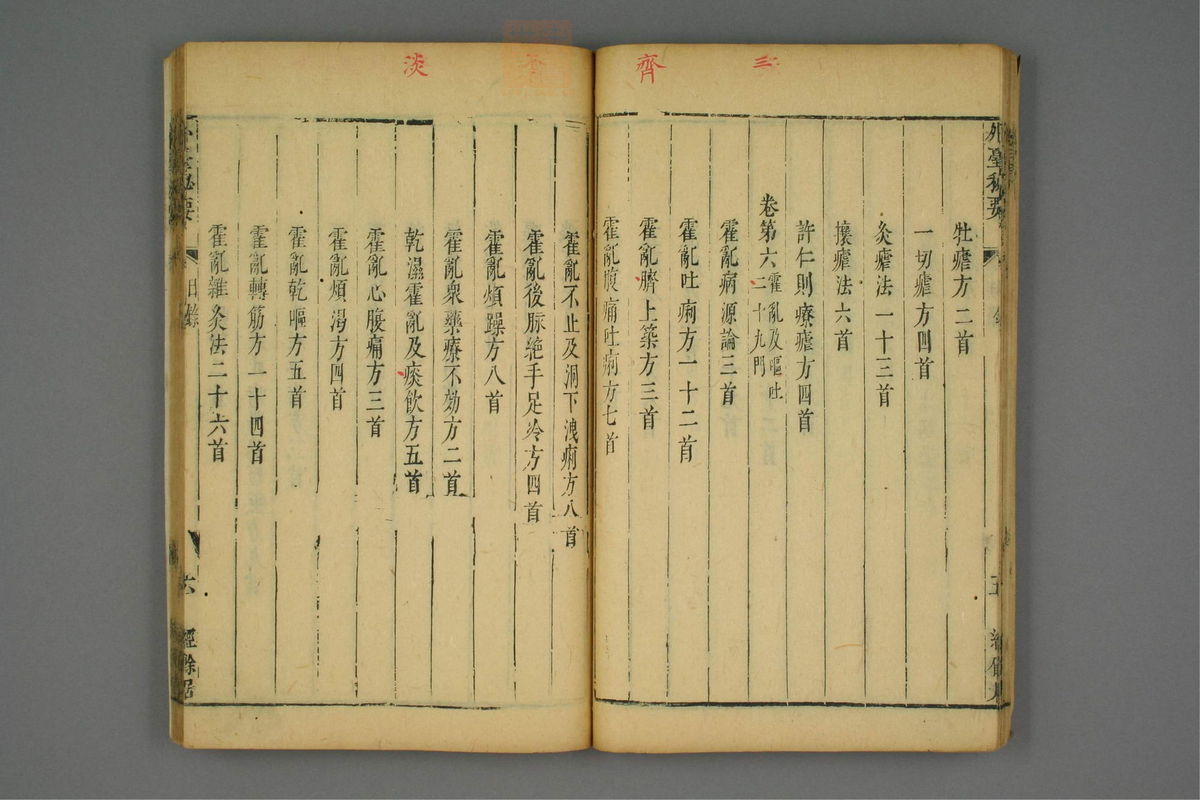 三
齊
外臺秘要
目錄
五
牡瘧方二首
一切瘧方四首
灸瘧法一十三首
攘瘧法六首
許仁則療瘧方四首
卷第六霍亂及嘔吐
二十九門
霍亂病源論三首
霍亂吐痢方一十二首
霍亂臍上築方三首
霍亂腹痛吐痢方七首
淡
霍亂不止及洞下洩痢方八首
霍亂後脉絶手足冷方四首
霍亂煩躁方八首
霍亂衆藥療不効方二首
乾濕霍亂及痰飲方五首
霍亂心腹痛方三首
霍亂煩渴方四首
霍亂乾嘔方五首
霍亂轉筋方一十四首
霍亂雜灸法二十六首
外臺秘要
目錄
六
經餘居